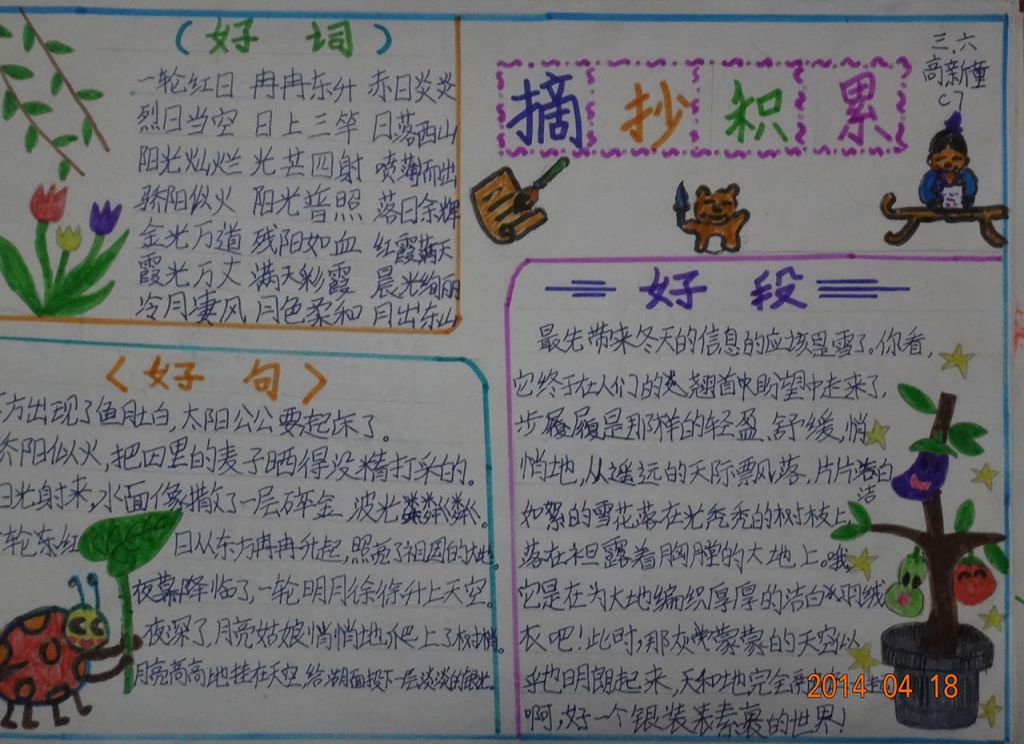 (好 词)
一轮红日 冉冉东升 赤日炎炎
烈日当空 日上三竿 日落西山
阳光灿烂 光芒四射 喷薄而出
骄阳似火 阳光普照 落日余辉
金光万道 残阳如血 红霞满天
霞光万丈 满天彩霞 晨光绚丽
冷月凄风 月色柔和 月出东山
摘抄积累
三.六
高新重
C7
〈好 句〉
方出现了鱼肚白,太阳公公要起床了。
阳似火,把四里的麦子晒得没精打采的。
光射来,水面像撒了一层碎金 波光粼粼。
轮东红 日从东方冉冉升起,照亮了祖国的大地
夜幕降临了一轮明月徐徐升上天空。
夜深了月亮姑娘悄悄地爬上了树梢。
月亮高高地挂在天空 给湖面投下一层淡淡的银光。
好 段
最先带来冬天的信息的应该是雪了。你看,
它终于在人们的翘首中盼望中走来了,
步履是那样的轻盈、舒缓,悄
悄地,从遥远的天际飘落,片片洁白
洁
如絮的雪花落在光秃秃的树枝上
落在袒露着胸膛的大地上。哦,
它是在为大地编织厚厚的洁白羽绒
衣吧!此时,那灰蒙蒙的天空似
乎也明朗起来,天和地完全
啊,好一个银装素裹的世界!
2014 04 18